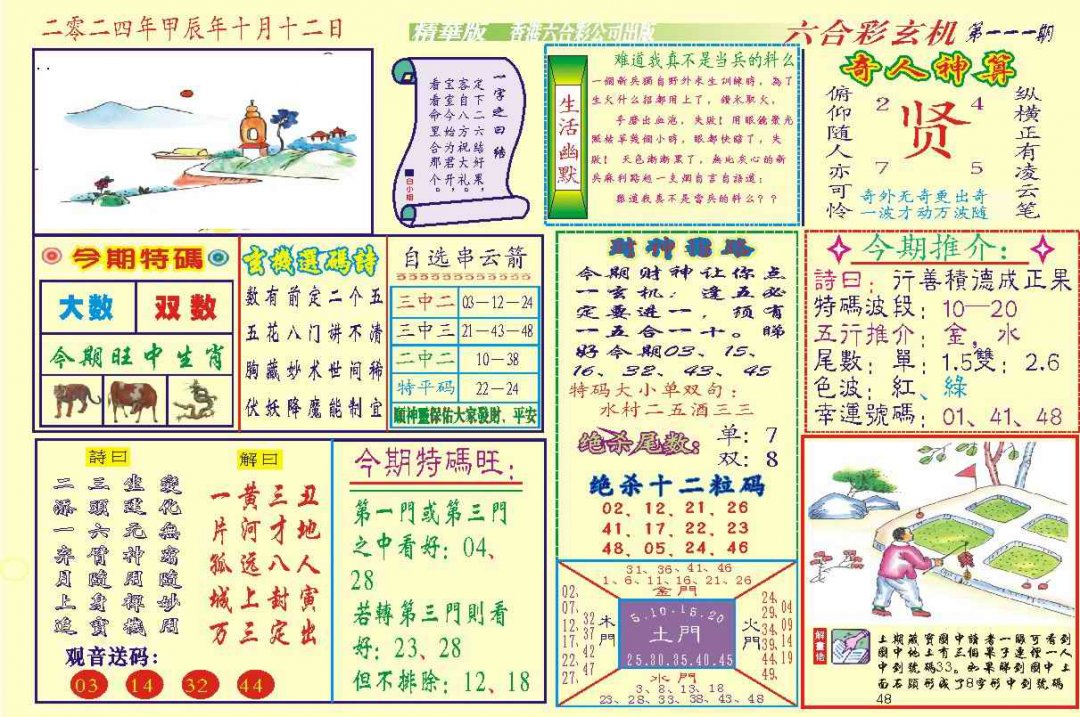 二零二四年甲辰年十月十二日
精華版 香港六合彩公司出版
六合彩玄机 第一一一期
一字之曰结
定下二六结果，
客自八方祝大礼。
宝宝今始为君开，
看看命里合那个。
白小姐
生活幽默
难道我真不是当兵的料么
一個新兵獨自野外求生訓練時，為了
生火什么招都用上了，鑽木取火，
手磨出血泡，失敗！用眼鏡聚光
照枯草幾個小時，眼都快瞎了，失
敗！天色漸漸黑了，無比灰心的新
兵麻利點起一支烟自言自語道：
難道我真不是當兵的料么？？
奇人神算
俯仰随人亦可怜
2 4
贤
7 5
纵横正有凌云笔
奇外无奇更出奇
一波才动万波随
今期特碼
大数 双数
今期旺中生肖
玄機選碼詩
数有前定二个五
五花八门讲不清
胸藏妙术世间稀
伏妖降魔能制宜
自选串云箭
三中二 03—12—24
三中三 21—43—48
二中二 10—38
特平码 22—24
願神靈保佑大家發財、平安
財神指路
今期财神让你点
一玄机：逢五必
定要进一，须有
一五合一十。睇
好今期03、15、
16、32、43、45
特码大小单双句：
水村二五酒三三
绝杀尾数： 单：7
双：8
绝杀十二粒码
02、12、21、26
41、17、22、23
48、05、24、46
今期推介：
詩曰：行善積德成正果
特碼波段：10—20
五行推介：金，水
尾數；單：1.5雙：2.6
色波：紅、綠
幸運號碼：01、41、48
詩曰
變化無窮隨妙用
三頭六臂隨身寶
解曰
丑地人寅出
三才八封定
黄河远上三
一片孤城万
观音送码：
03 14 32 44
今期特碼旺：
第一門或第三門
之中看好：04、
28
若轉第三門則看
好：23、28
但不排除：12、18
31、36、41、46
1、6、11、16、21、26
金門
02、07、12、17、22、27
32 37 42 47
木門
5.10-15.20
土門
25.30.35.40.45
火門
24、29、34、39、44、49
04 09 14 19
水門
3、8、13、18
23、28、33、38、43、48
解畫
上期藏寶圖中讀者一眼可看到
圖中地上有三個果子連住一人
中到號碼33。如果睇到圖中上
面石頭形成了8字形中到號碼
48